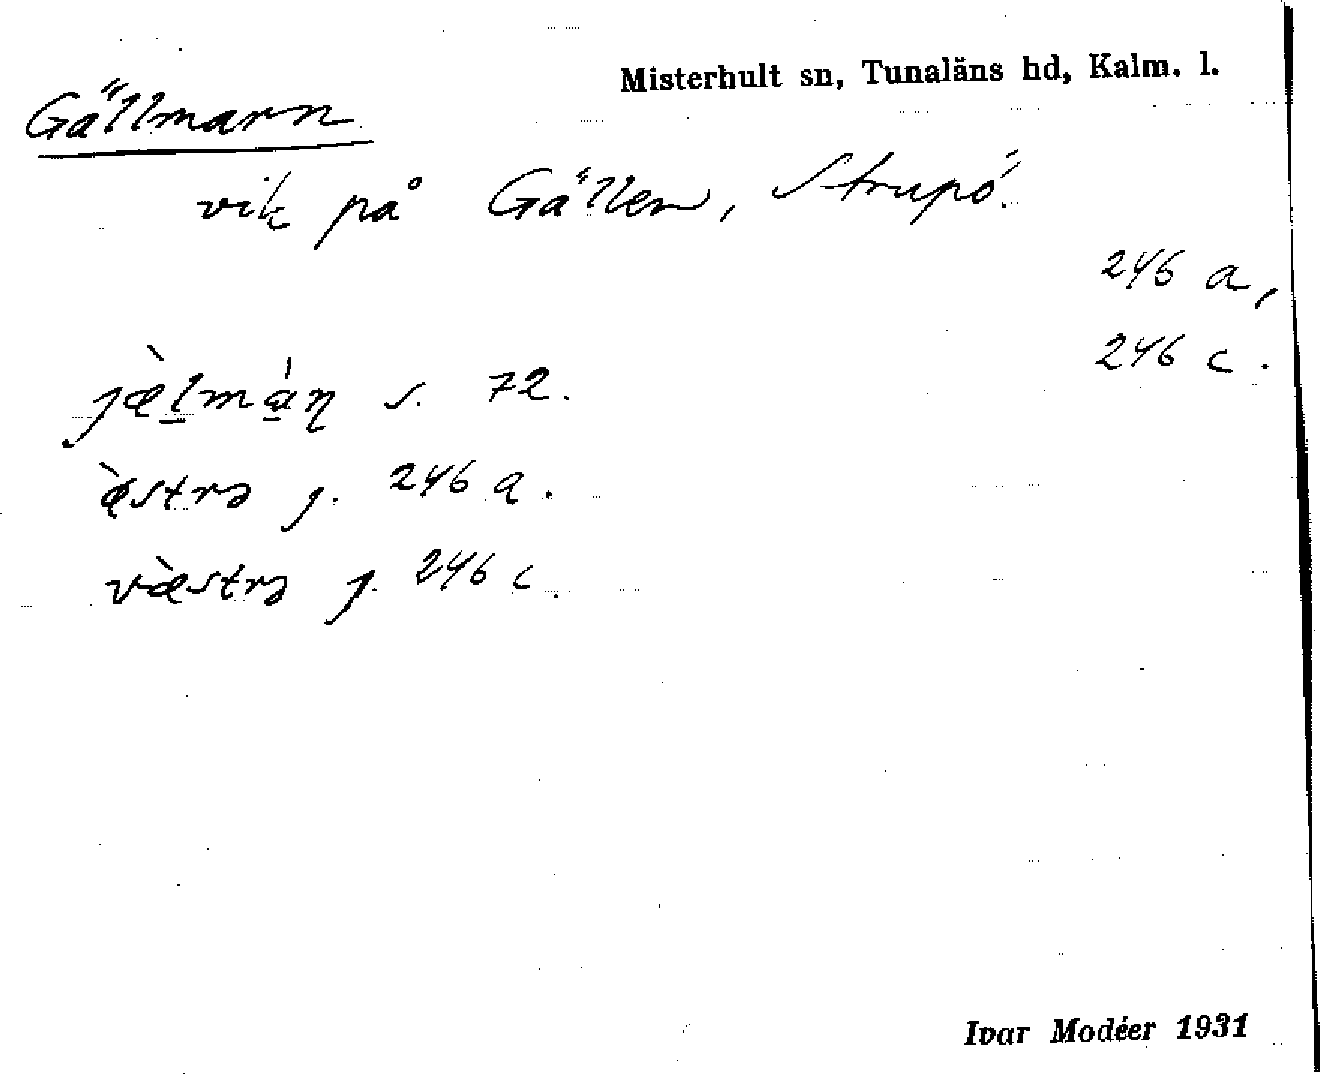 Misterhult sn, Tunaläns hd, Kalm. l.
Gällmarn
vik på Gällen, Strupö.
246 a,
246 c.
jæ̀lmáɳ s. 72.
æ̀strə j. 246 a.
væ̀strə j. 246 c.
Ivar Modéer 1931